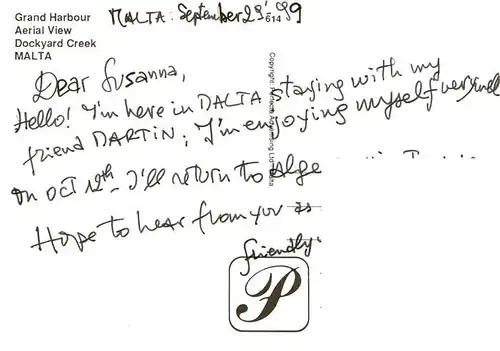 Grand Harbour
Aerial View
Dockyard Creek
MALTA
MALTA: September 29' 99
614
Dear Susanna,
Hello! I'm here in MALTA staying with my
friend MARTIN; I'm enjoying myself very
On OCT 12th I'll return to Alge
Hope to hear from you as
friendly.
P
Copyright Perfecta Advertising Ltd. Malta